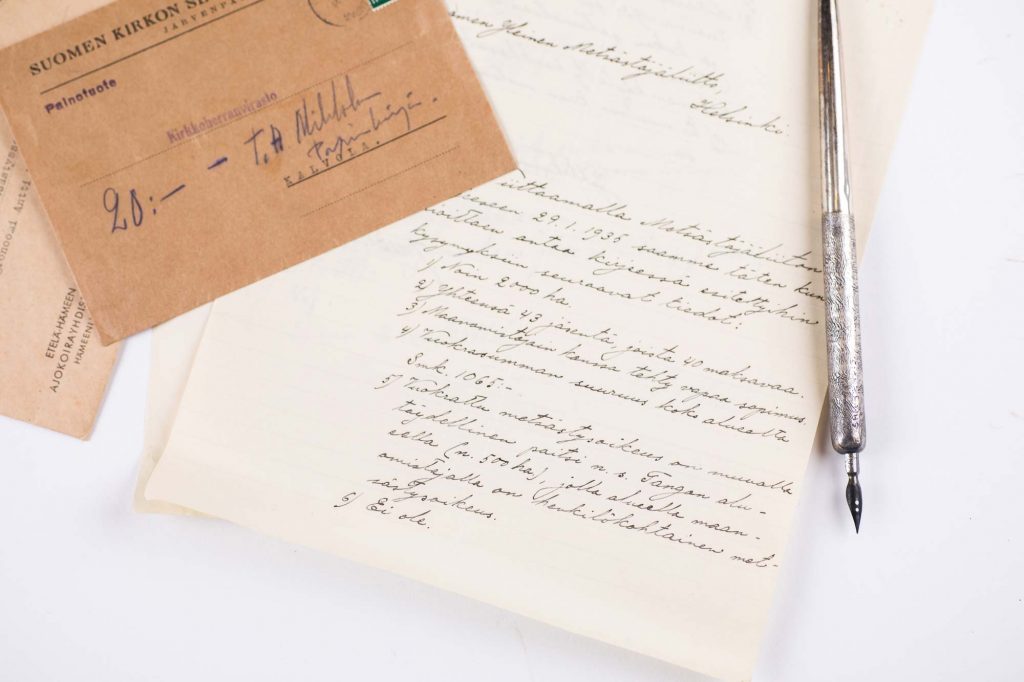 SUOMEN KIRKON
JÄRVENPÄ
Painotuote
Kirkkoherranvirasto
20:- - T.A
KALVOLA.
ETELÄ-HÄMEEN
AJOKOIRAYHDIS
HÄMEENL
omen Yleinen Metsästäjäliitto,
Helsinki.
uittaamalla Metsästäjäliiton
eeseen 29.1.1935 saamme täten kun
antaa kirjeessä esitettyihin
kysymyksiin seuraavat tiedot:
1) Noin 2000 ha.
2) Yhteensä 43 jäsentä joista 40 maksavaa.
3) Maanomistajain kanssa tehty vapaa sopimus.
4) Vuokrasumman suuruus koko alueelta
Smk. 1065:-
5) Vuokrattu metsästysoikeus on muualla
täydellinen paitsi n.s. Tangan alu-
eella (n. 500 ha), jolla alueella maan-
omistajalla on henkilökohtainen met-
sästysoikeus.
6) Ei ole.